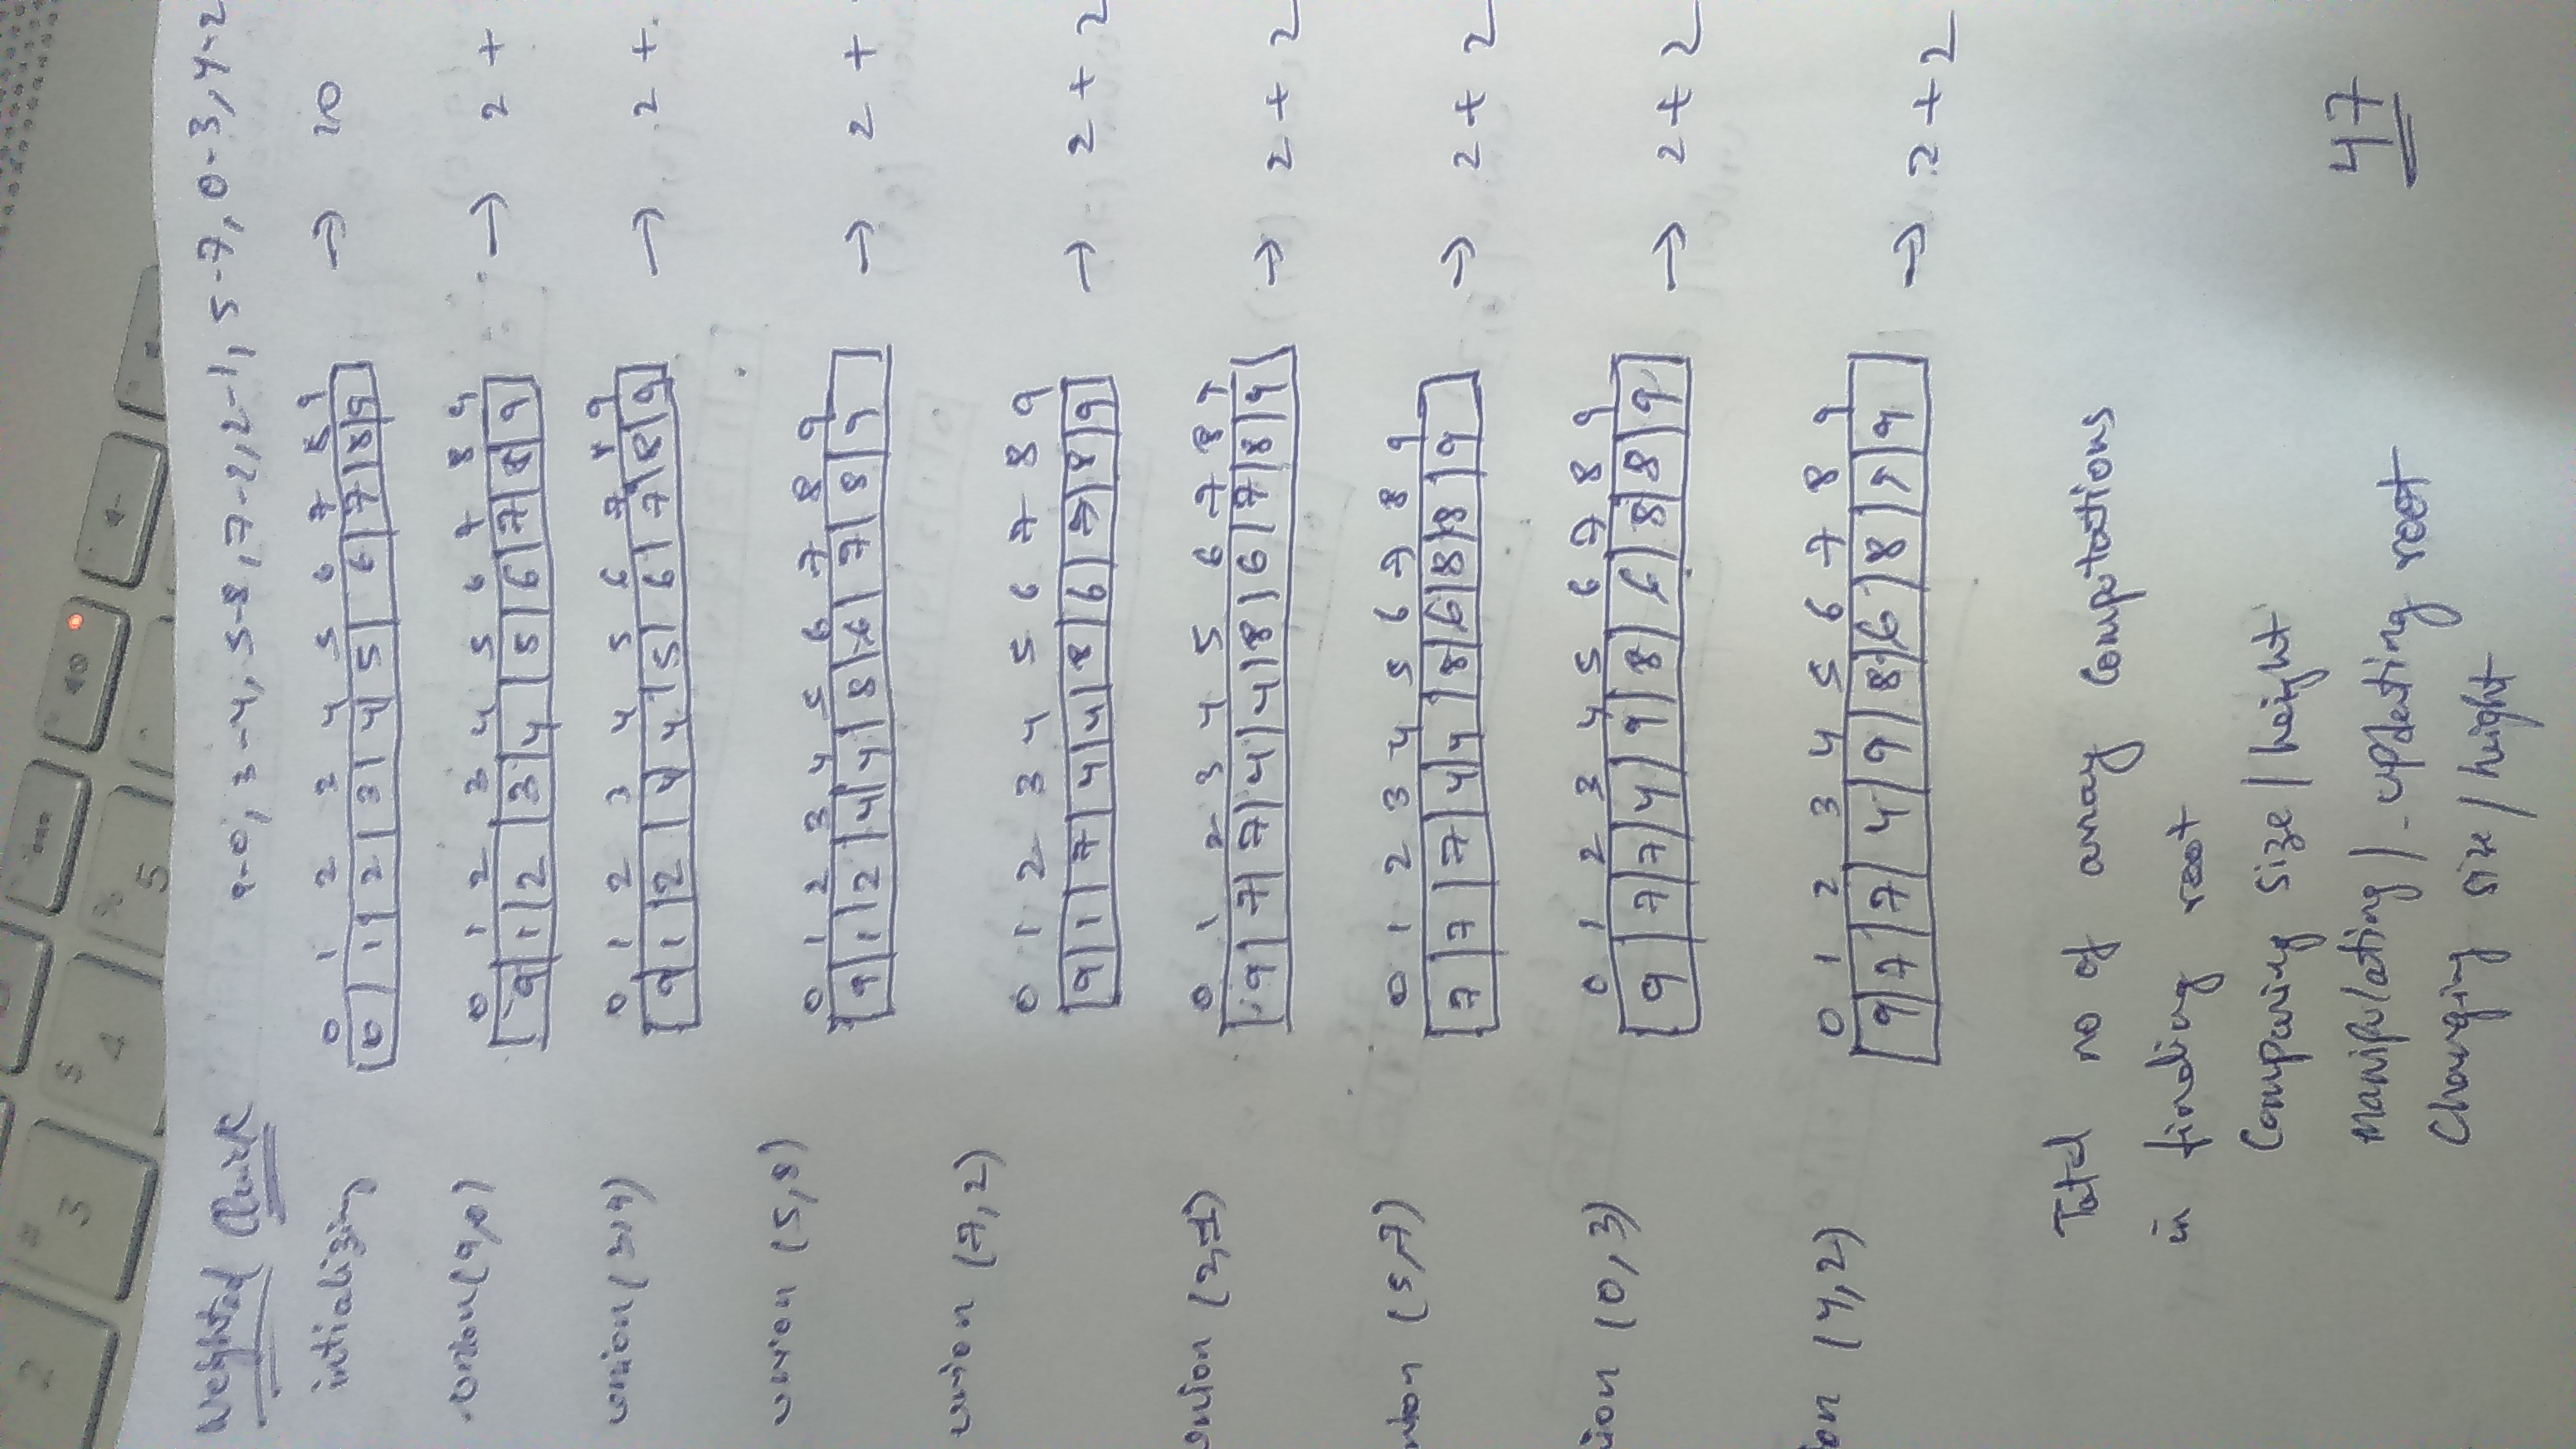 2 3 4 5
Weighted Quick 9-0, 3-4, 5-8, 7-2, 2-1, 5-7, 0-3, 4-2
intializing
0 1 2 3 4 5 6 7 8 9
0 1 2 3 4 5 6 7 8 9 → 10
union(9,0)
0 1 2 3 4 5 6 7 8 9
9 1 2 3 4 5 6 7 8 9 → 2 +
union(3,4)
0 1 2 3 4 5 6 7 8 9
9 1 2 4 4 5 6 7 8 9 → 2 +
union (5,8)
0 1 2 3 4 5 6 7 8 9
9 1 2 4 4 8 6 7 8 9 → 2 +
union (7,2)
0 1 2 3 4 5 6 7 8 9
9 1 7 4 4 8 6 7 8 9 → 2 + 2
union (2,1)
0 1 2 3 4 5 6 7 8 9
9 7 7 4 4 8 6 7 8 9 → 2 + 2
nion (5,7)
0 1 2 3 4 5 6 7 8 9
7 7 7 4 4 8 6 8 8 9 → 2 + 2
ion (0,3)
0 1 2 3 4 5 6 7 8 9
9 7 7 4 9 8 6 8 8 9 → 2 + 2
on (4,2)
0 1 2 3 4 5 6 7 8 9
9 7 7 4 9 8 6 8 9 9 → 2 + 2
Total no of array Computations
in finding root
Comparing size / height
manipulating / updating root 47
Changing size / height